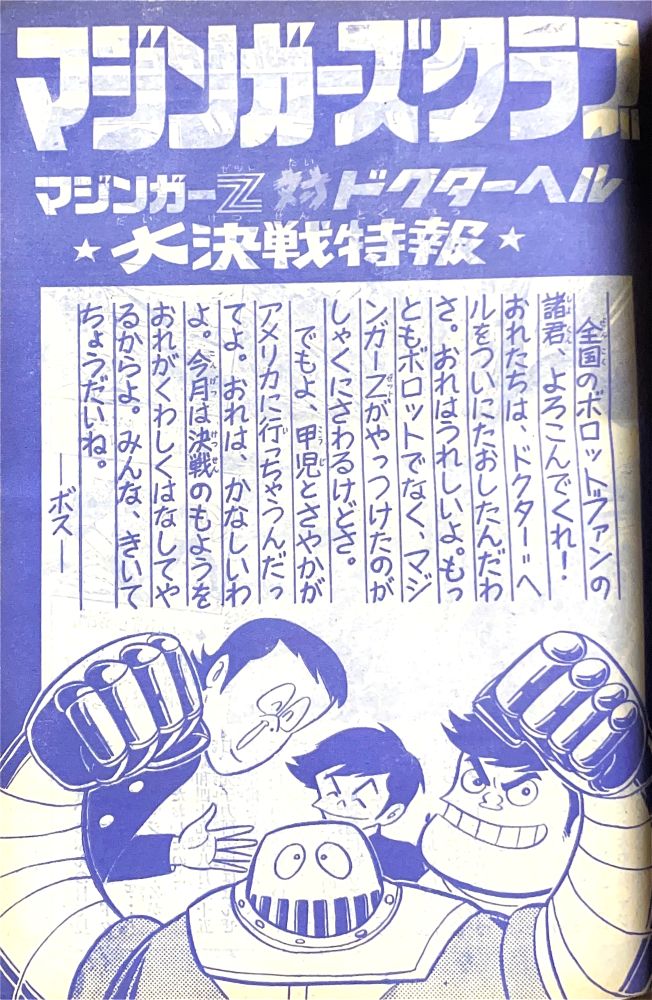 マジンガーズクラブ
マジンガーZ対ドクターヘル
★大決戦特報★
全国のボロットファンの
諸君、よろこんでくれ！
おれたちは、ドクター＝ヘ
ルをついにたおしたんだわ
さ。おれはうれしいよ。もっ
ともボロットでなく、マジ
ンガーZがやっつけたのが
しゃくにさわるけどさ。
でもよ、甲児とさやかが
アメリカに行っちゃうんだっ
てよ。おれは、かなしいわ
よ。今月は決戦のもようを
おれがくわしくはなしてや
るからよ。みんな、きいて
ちょうだいね。
―ボス―